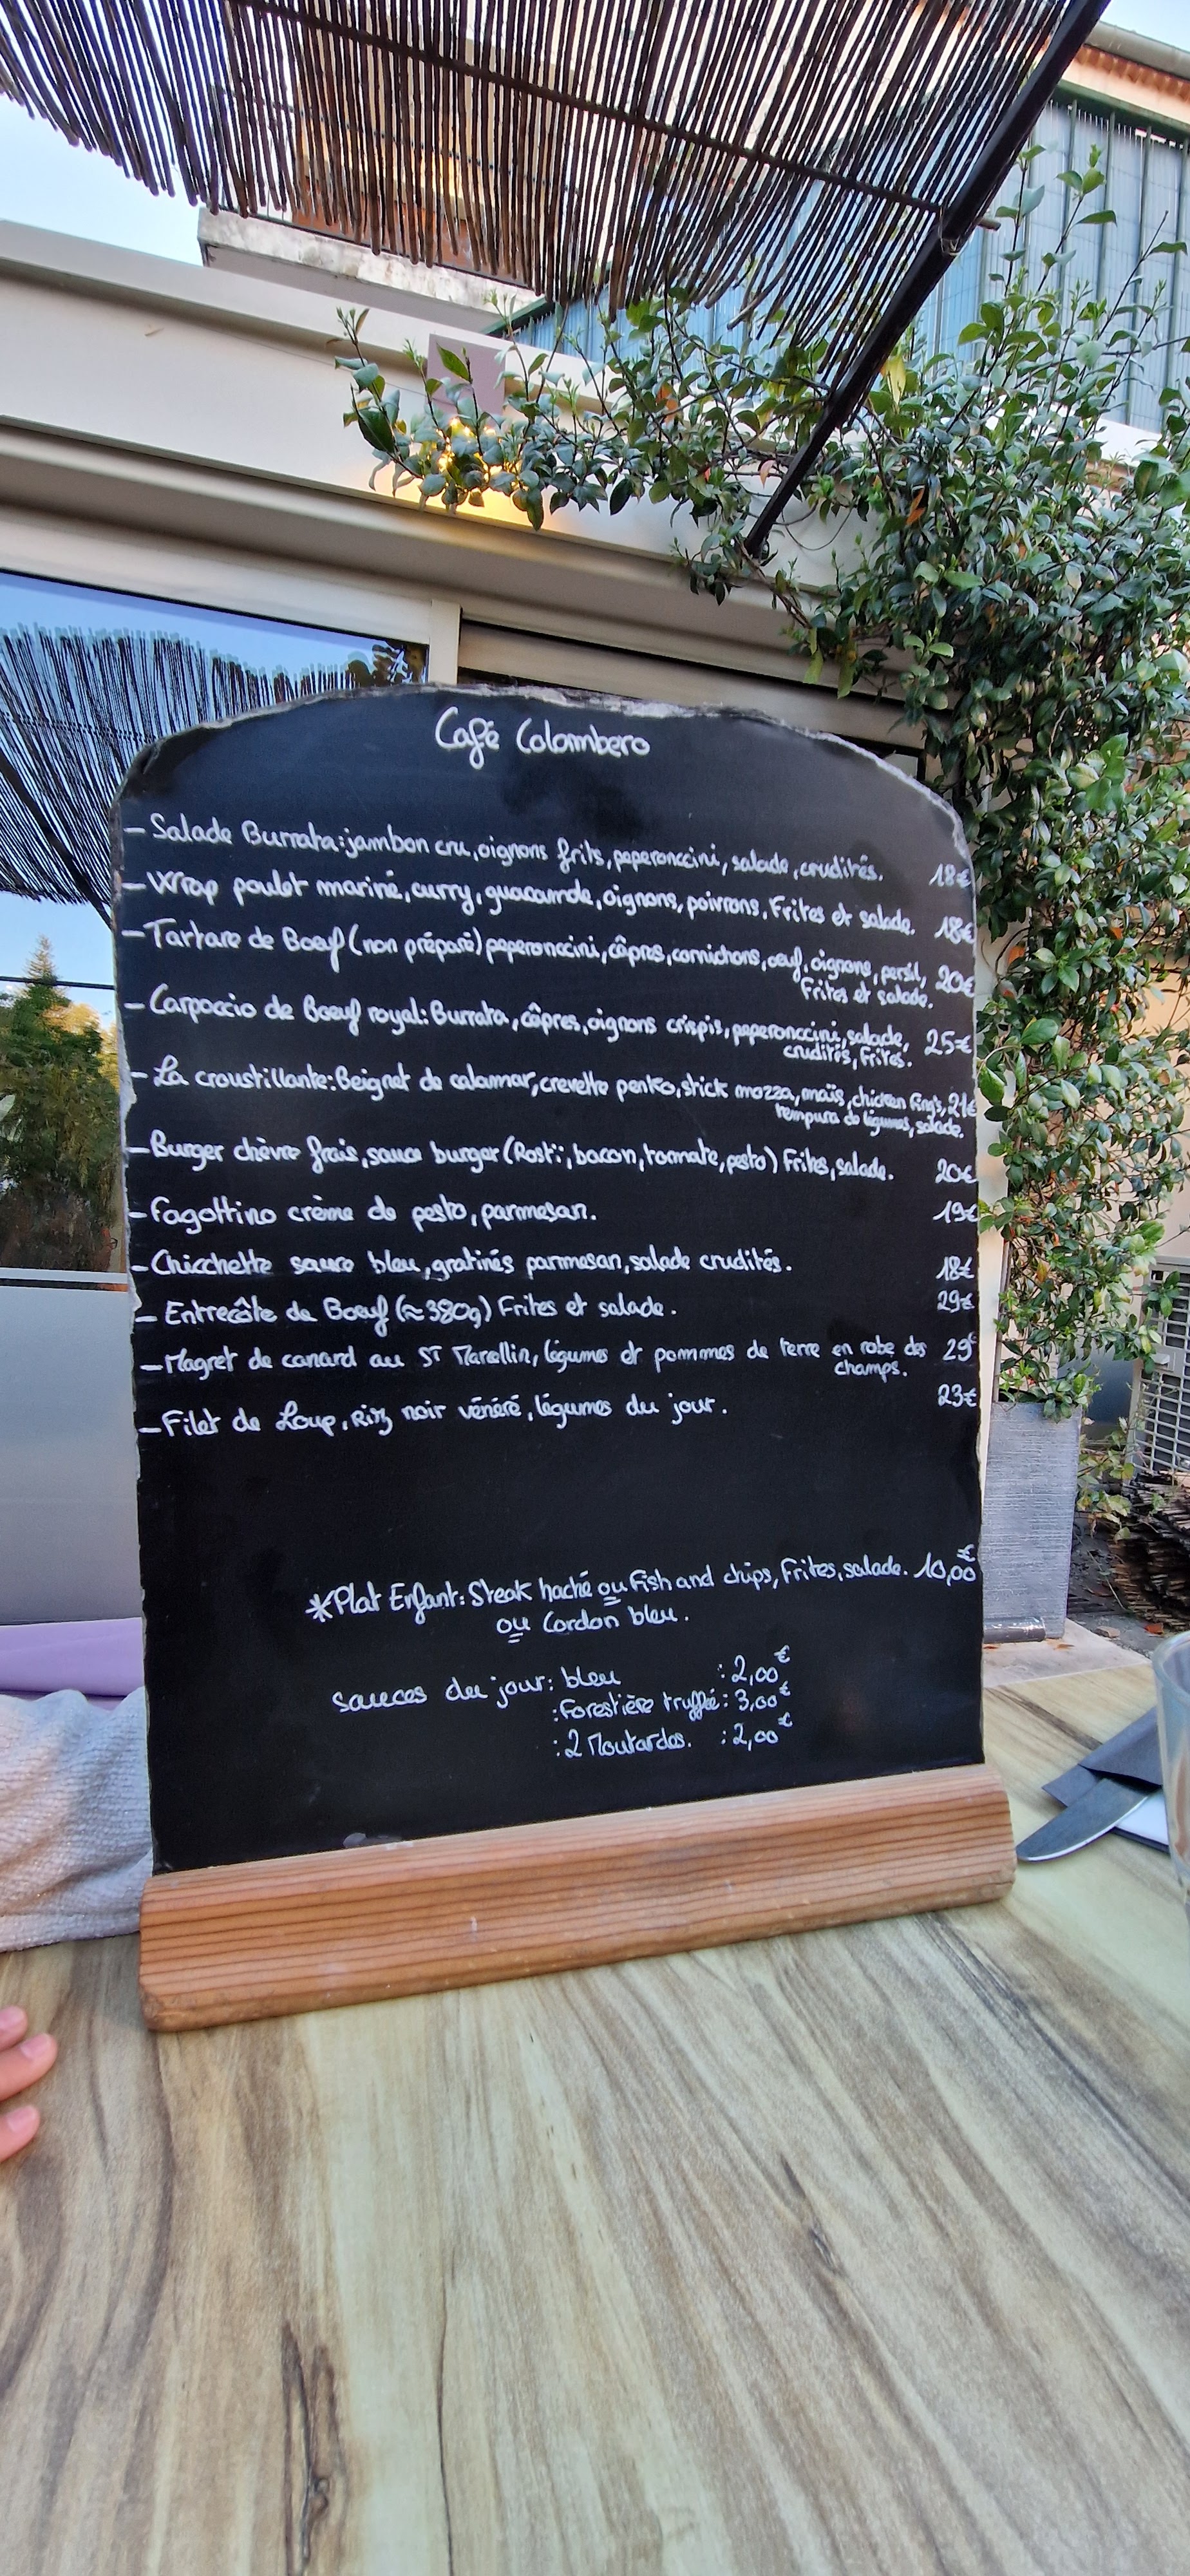 Café Colombero
- Salade Burrata: jambon cru, oignons frits, peperoncini, salade, crudités. 18€
- Wrap poulet mariné, curry, guacamole, oignons, poivrons, Frites et salade. 18€
- Tartare de Boeuf (non préparé) peperonccini, câpres, cornichons, oeuf, oignons, persil, 20€
Frites et salade.
- Carpaccio de Boeuf royal: Burrata, câpres, oignons crispis, peperonccini, salade, 25€
crudités, Frites.
- La croustillante: Beignet de calamar, crevette panko, stick mozza, maïs, chicken Ring's, 21€
tempura de légumes, salade.
- Burger chèvre frais, sauce burger (Rosti, bacon, tomate, pesto) Frites, salade. 20€
- Fagottino crème de pesto, parmesan. 19€
- Chicchette sauce bleu, gratinés parmesan, salade crudités. 18€
- Entrecôte de Boeuf (≈380g) Frites et salade. 29€
- Magret de canard au ST Marcellin, légumes et pommes de terre en robe des 29€
champs.
- Filet de Loup, Riz noir vénéré, légumes du jour. 23€
*Plat Enfant: Steak haché ou Fish and chips, Frites, salade. 10,00€
ou Cordon bleu.
sauces du jour: bleu : 2,00€
: Forestière truffée : 3,00€
: 2 Moutardes. : 2,00€